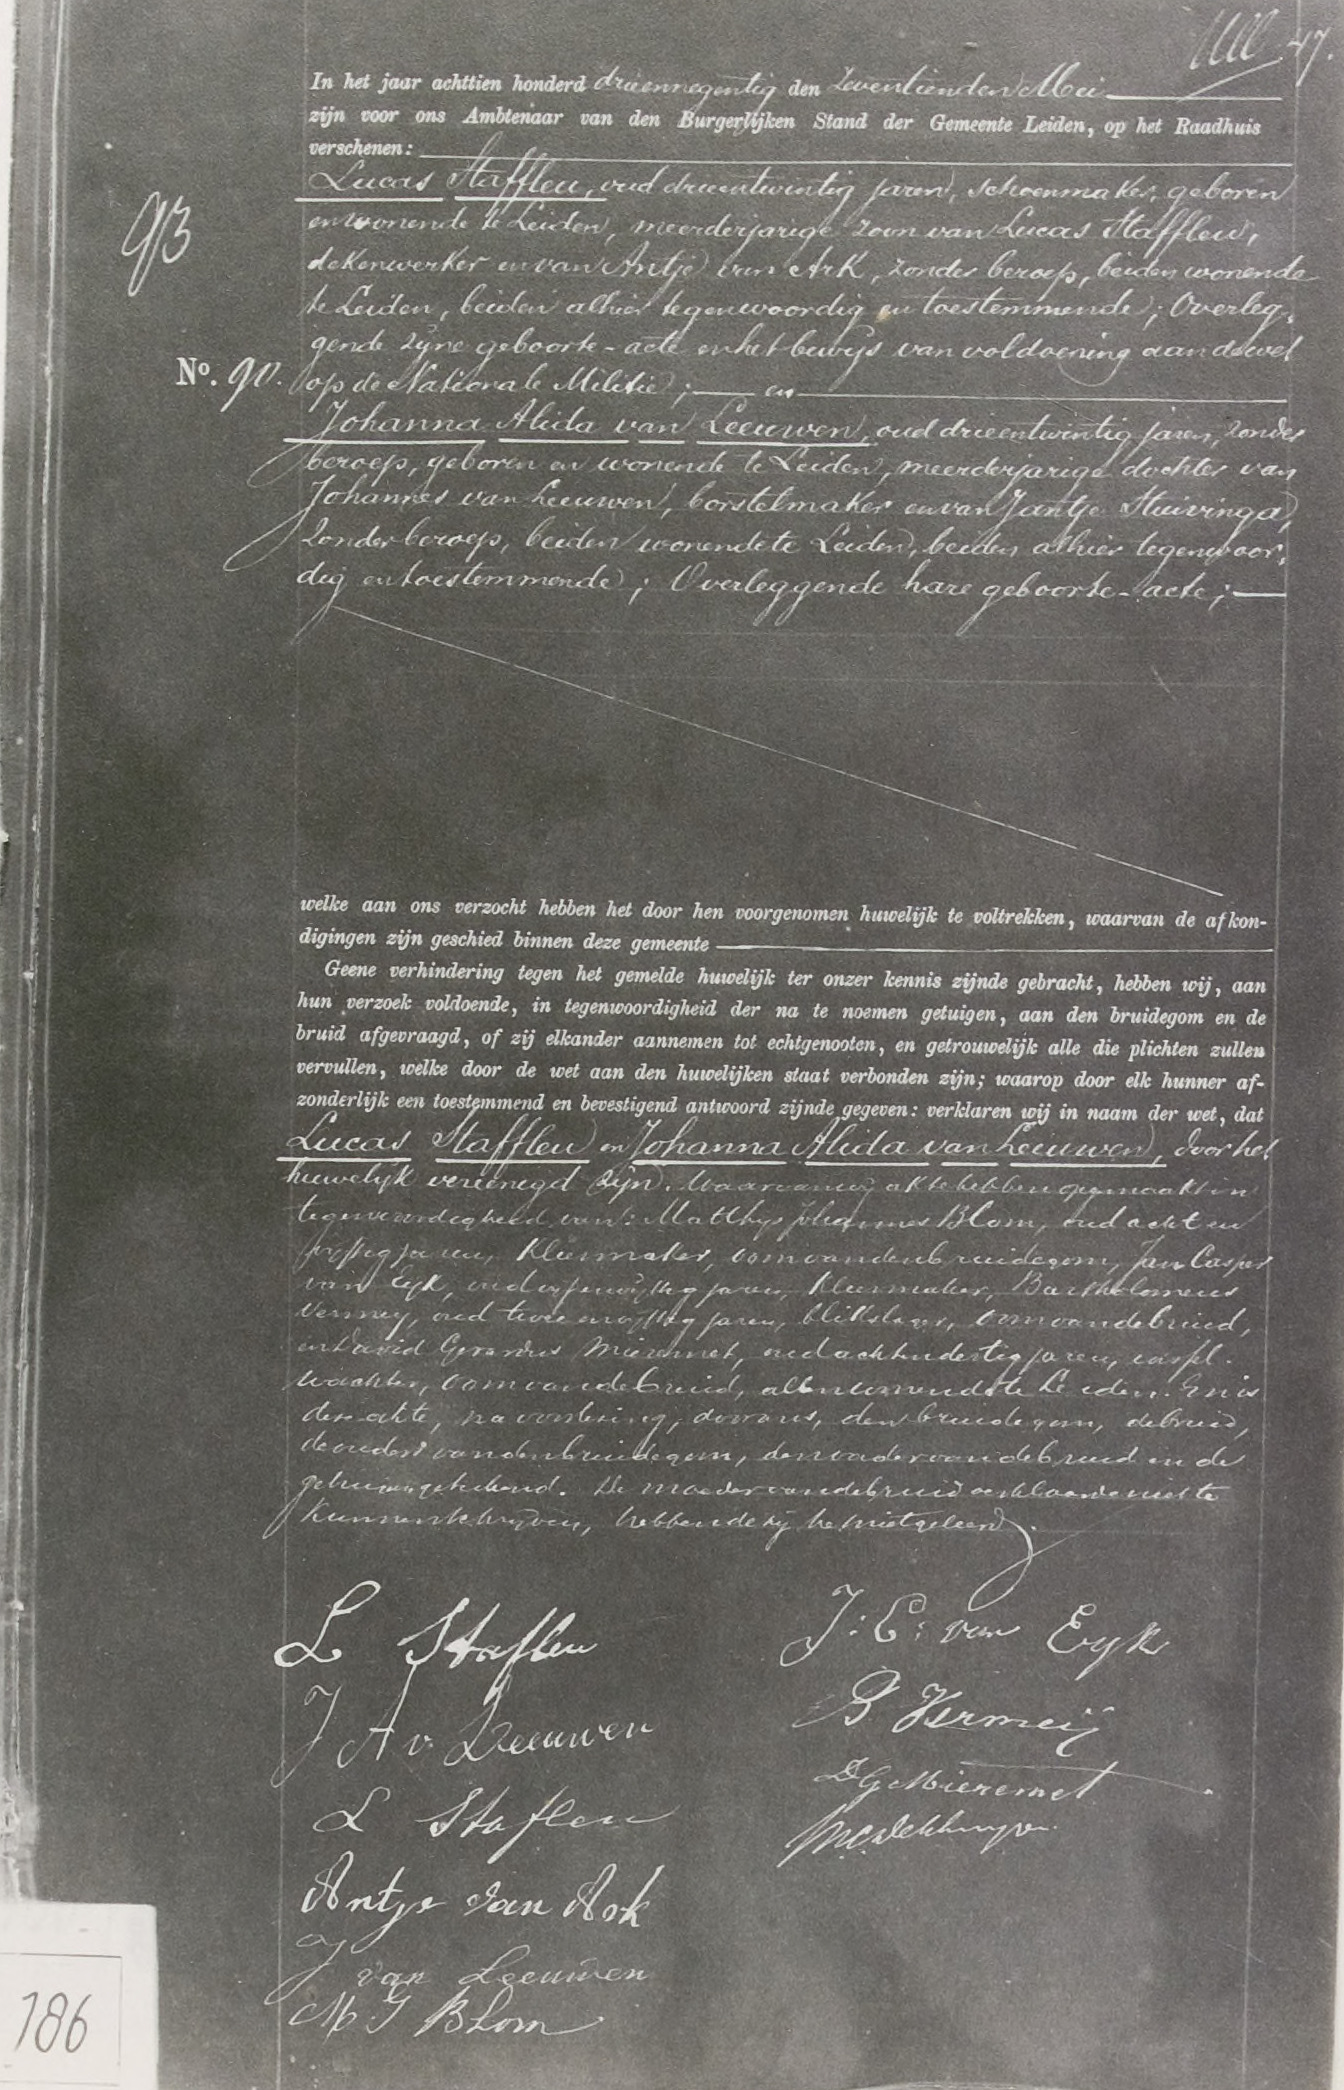 47.
In het jaar achttien honderd drieennegentig den zeventienden Mei
zijn voor ons Ambtenaar van den Burgerlijken Stand der Gemeente Leiden, op het Raadhuis
verschenen:
Lucas Staffleu, oud drieentwintig jaren, schoenmaker, geboren
en wonende te Leiden, meerderjarige zoon van Lucas Staffleu,
93
dekenwerker en van Antje van Ark, zonder beroep, beiden wonende
te Leiden, beiden alhier tegenwoordig en toestemmende; Overleg-
gende zijne geboorte-acte en het bewijs van voldoening aan de wet
No. 90.
op de Nationale Militie; en
Johanna Alida van Leeuwen, oud drieentwintig jaren, zonder
beroep, geboren en wonende te Leiden, meerderjarige dochter van
Johannes van Leeuwen, borstelmaker en van Jantje Stuivinga,
zonder beroep, beiden wonende te Leiden, beiden alhier tegenwoor-
dig en toestemmende; Overleggende hare geboorte-acte;
welke aan ons verzocht hebben het door hen voorgenomen huwelijk te voltrekken, waarvan de afkon-
digingen zijn geschied binnen deze gemeente
Geene verhindering tegen het gemelde huwelijk ter onzer kennis zijnde gebracht, hebben wij, aan
hun verzoek voldoende, in tegenwoordigheid der na te noemen getuigen, aan den bruidegom en de
bruid afgevraagd, of zij elkander aannemen tot echtgenooten, en getrouwelijk alle die plichten zullen
vervullen, welke door de wet aan den huwelijken staat verbonden zijn; waarop door elk hunner af-
zonderlijk een toestemmend en bevestigend antwoord zijnde gegeven: verklaren wij in naam der wet, dat
Lucas Staffleu en Johanna Alida van Leeuwen, door het
huwelijk vereenigd zijn. Waarvan wij akte hebben opgemaakt in
tegenwoordigheid van: Matthys Johannes Blom, oud acht en
vijftig jaren, Kleermaker, oom van den bruidegom, Jan Casper
van Eyk, oud vijfenvijftig jaren, Kleermaker, Bartholomeus
Vermey, oud twee en vijftig jaren, blikslager, oom van de bruid,
en David Gerardus Mieremet, oud achtendertig jaren,
wachter, oom van de bruid, allen wonende te Leiden. En is
deze akte, na voorlezing, door ons, den bruidegom, de bruid,
de ouders van den bruidegom, den vader van de bruid en de
getuigen geteekend. De moeder van de bruid verklaarde niet te
kunnen schrijven, hebbende zij het niet geleerd.
L Stafleu
J A v. Leeuwen
L Stafleu
Antje van Ark
J van Leeuwen
M J Blom
J: C: van Eyk
B. Vermeij
D G Mieremet
186